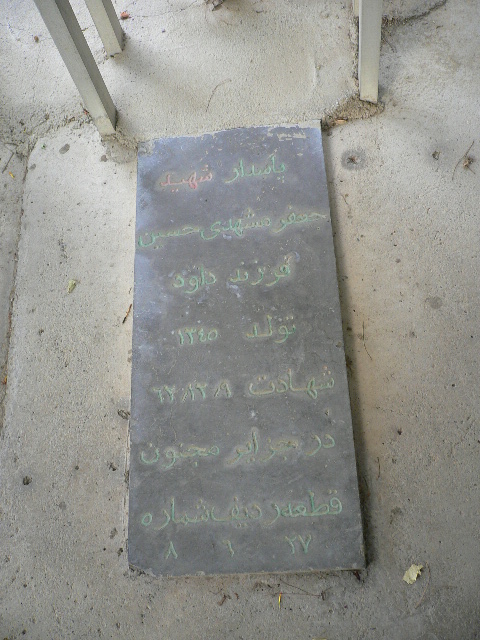 پاسدار شهید
جعفر مشهدی حسین
فرزند داود
تولد ۱۳۴۵
شهادت ۶۲/۱۲/۹
در جزایر مجنون
قطعه ردیف شماره
۲۷ ۶ ۸